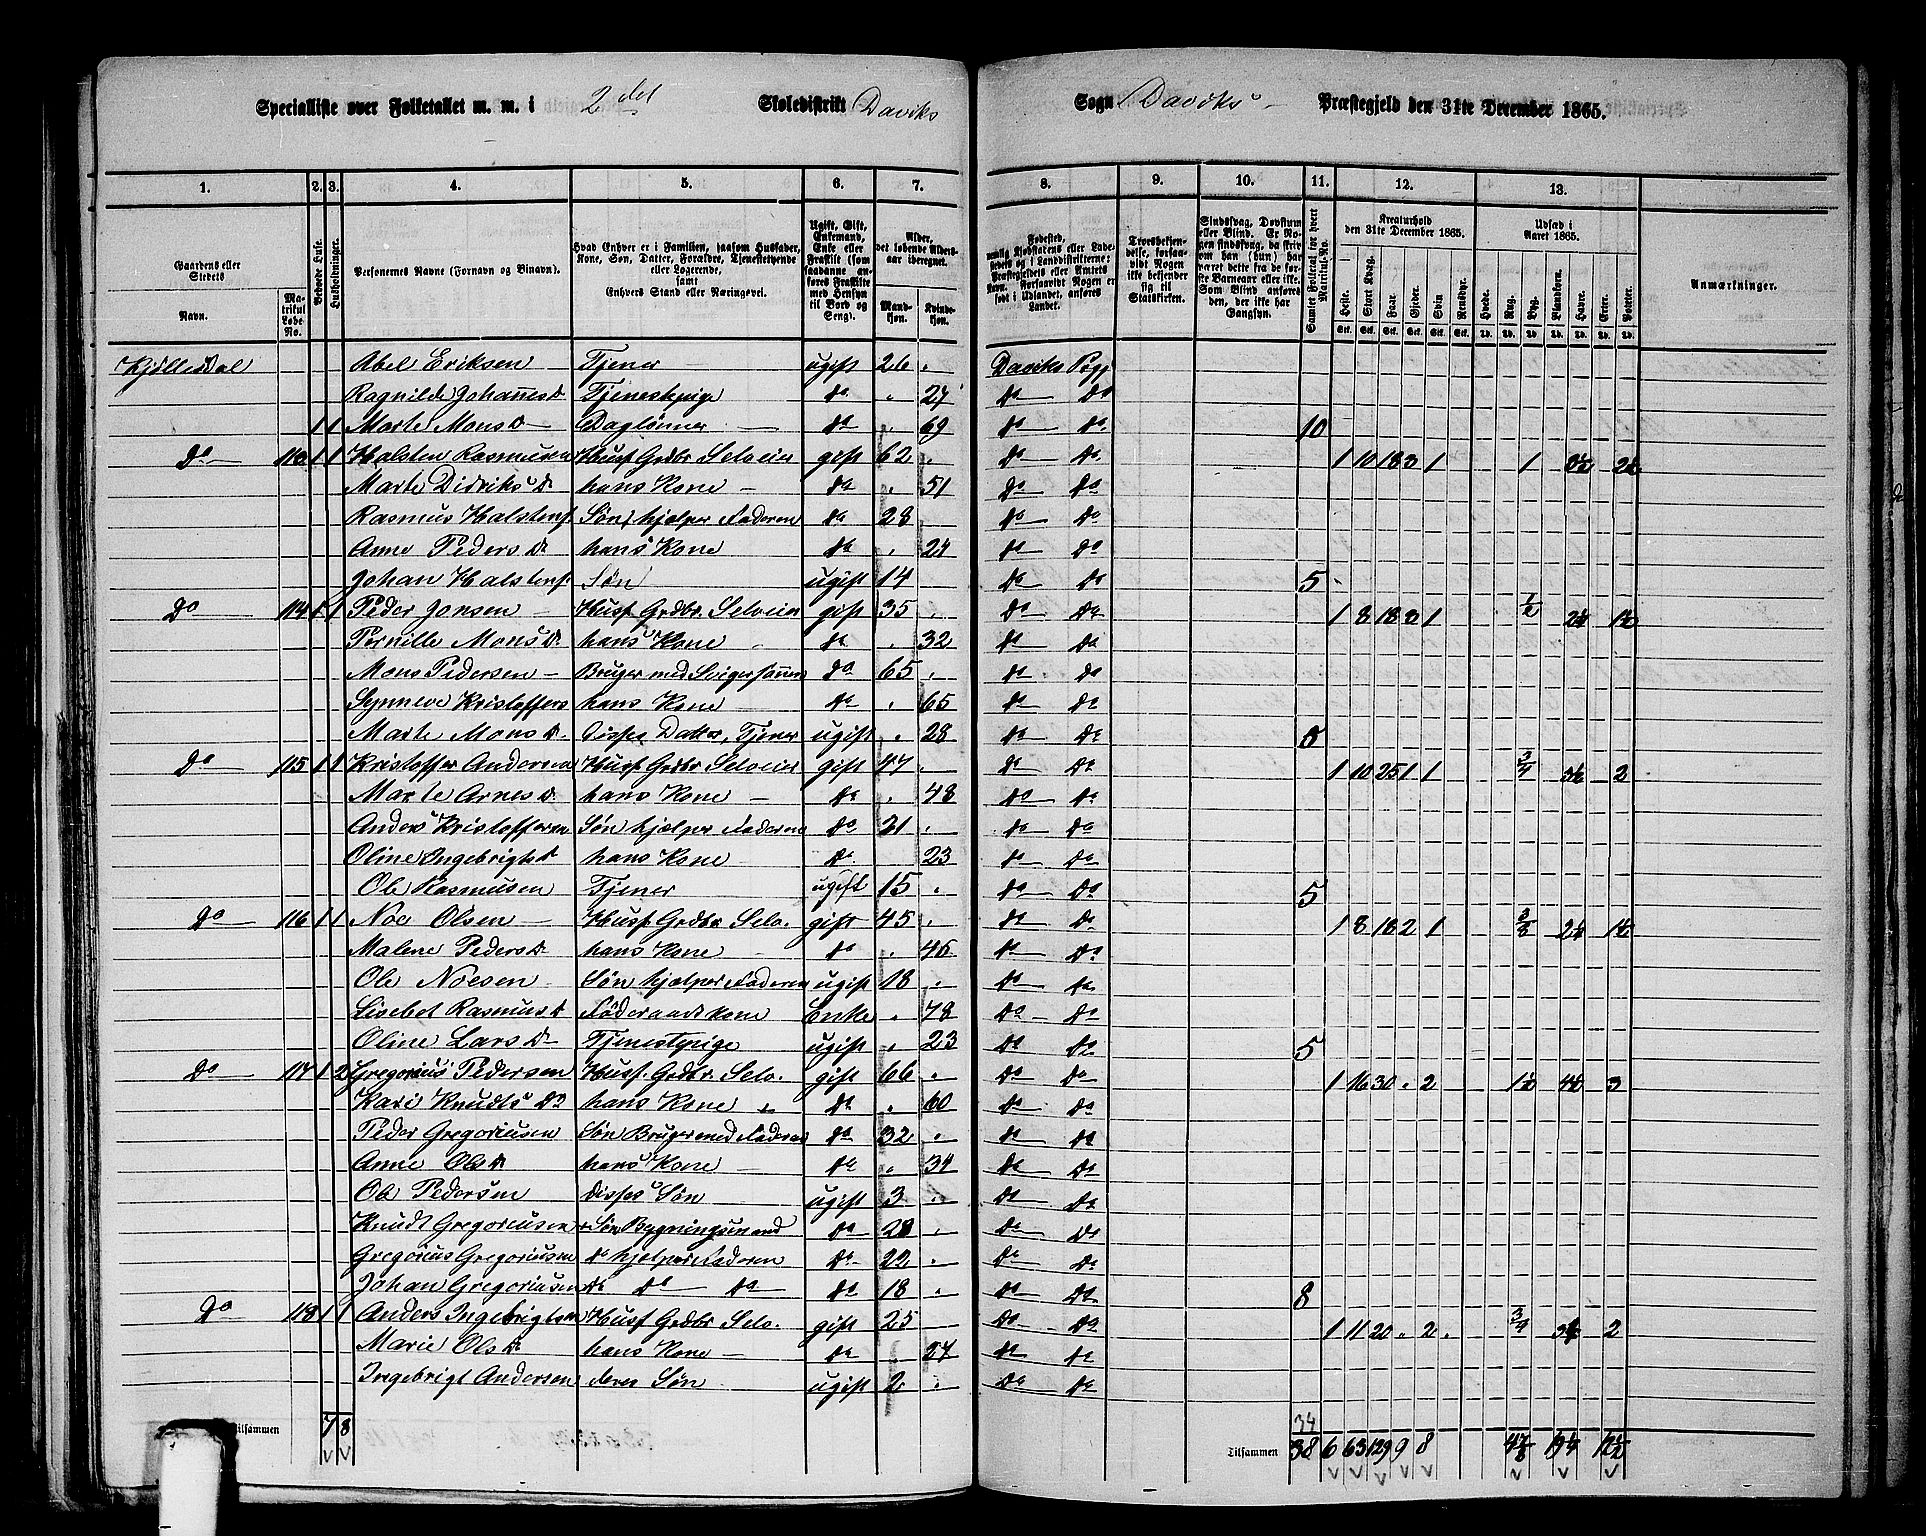 Specialliste over Folketallet m. m. i 2det Skoledistrikt Daviks Sogn Daviks Præstegjeld den 31te December 1865.
1. 2. 3. 4. 5. 6. 7. 8. 9. 10. 11. 12. 13.
Gaardens eller Stedets Navn. Matrikul Løbe-No. Beboede Huse. Husholdninger. Personernes Navne (Fornavn og Binavn). Hvad Enhver er i Familien, saasom Husfader, Kone, Søn, Datter, Forældre, Tjenestetyende eller Logerende, samt Enhvers Stand eller Næringsvei. Ugift, Gift, Enkemand, Enke eller Fraskilt (som saadanne anføres Fraskilte med Hensyn til Bord og Seng). Alder, det løbende Aldersaar iberegnet. Mandkjøn. Kvindekjøn.
Fødested, Trosbekjendelse, forsaavidt Nogen ikke bekjender sig til Statskirken. Samlet Folketal for hvert Matrikul-No. Kreaturhold den 31te December 1865. Udsæd i Aaret 1865. Anmærkninger.
Heste. Stort Kvæg. Faar. Gjeder. Svin. Rensdyr. Hvede. Rug. Byg. Blandkorn. Havre. Erter. Poteter.
Kjøllesdal Abel Eriksen Tjener ugift 26 Daviks Pgj
Ragnilde Johannesd Tjenestepige do 27 do do
1 1 Marte Monsd Daglønner do 69 do do 10
do 113 1 1 Halsten Rasmusen Husf Grdbr Selveier gift 62 do do 1 10 18 3 1 1
Marte Didriksd hans Kone do 51 do do
Rasmus Halstens. Søn, hjælper Faderen do 28 do do
Anne Pedersd hans Kone do 24 do do
Johan Halstens. Søn ugift 14 do do 5
do 114 1 1 Peder Jonsen Husf Grdbr Selveier gift 35 do do 1 8 18 3 1 1/2
Pernille Monsd. hans Kone do 32 do do
Mons Pedersen Bruger med Svigersønnen do 65 do do
Synneve Kristoffers hans Kone do 65 do do
Marte Monsd. Disses Datter, Tjener ugift 28 do do
do 115 1 1 Kristoffer Andersen Husf Grdbr Selveier gift 47 do do 1 10 25 1 1 3/4 2
Marte Arnesd. hans Kone do 48 do do
Anders Kristoffersen Søn hjælper Faderen do 21 do do
Oline Ingebrigtsd hans Kone do 23 do do
Ole Rasmusen Tjener ugift 15 do do 5
do 116 1 1 Noe Olsen Husf Grdbr Selv. gift 45 do do 1 8 18 2 1 3/8
Malene Pedersd hans Kone do 46 do do
Ole Noesen Søn hjælper Faderen ugift 18 do do
Lisebet Rasmusd Føderaadskone Enke 78 do do
Oline Larsd Tjenestepige ugift 23 do do 5
do 117 1 2 Gregorius Pedersen Husf. Grdbr. Selv. gift 66 do do 1 16 30 2 3
Kari Knudtsd hans Kone do 60 do do
Peder Gregoriusen Søn Bruger med Faderen do 32 do do
Anne Olsd hans Kone do 34 do do
Ole Pedersen disses Søn ugift 3 do do
Knudt Gregoriusen Søn Bygningsmand do 28 do do
Gregorius Gregoriusen do hjelper Faderen do 22 do do
Johan Gregoriusen do do do do 18 do do 8
do 118 1 1 Anders Ingebrigtsen Husf Grdbr Selv. gift 25 do do 1 11 20 2 3/4 2
Marie Olsd hans Kone do 27 do do
Ingebrigt Andersen deres Søn ugift 2 do do
Tilsammen 7 8 34
Tilsammen 38 6 63 129 9 8